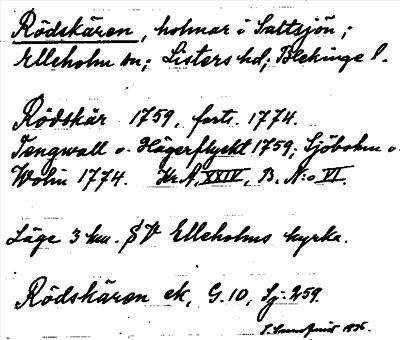 Rödskären, holmar i Saltsjön;
Elleholm sn; Listers hd; Blekinge l.
Rödskär 1759, forts. 1774.
Tengwall o. Hägerflyckt 1759, Sjöbohm o.
Wolin 1774. Kr. A, XXIV, B, N:o VI.
Läge 3 km. SV Elleholms kyrka.
Rödskären ek, G. 10, Sj. 259.